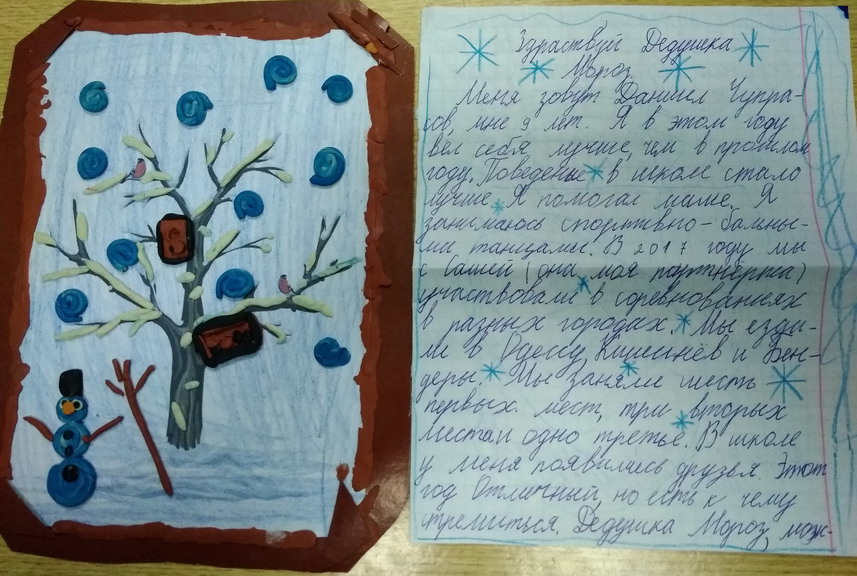 Здраствуй Дедушка
Мороз.
Меня зовут Даниил Чупра-
сов, мне 9 лет. Я в этом году
вёл себя лучше, чем в прошлом
году. Поведение в школе стало
лучше. Я помогал маме. Я
занимаюсь спортивно-бальны-
ми танцами. В 2017 году мы
с Сашей (она моя партнёрша)
участвовали в соревнованиях
в разных городах. Мы езди-
ли в Одессу, Кишенёв и Бен-
деры. Мы заняли шесть
первых мест, три вторых
места и одно третье. В школе
у меня появились друзья. Этот
год Отличный, но есть к чему
стремиться. Дедушка Мороз, мож-